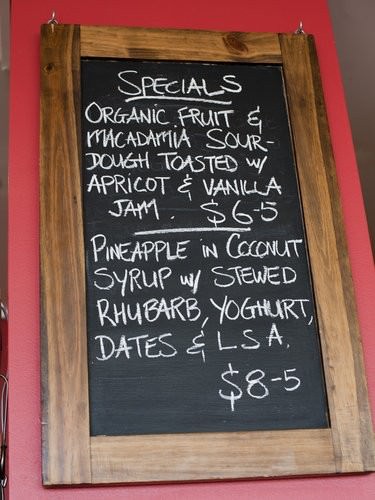 SPECIALS
ORGANIC FRUIT &
MACADAMIA SOUR-
DOUGH TOASTED W/
APRICOT & VANILLA
JAM. $6-5
PINEAPPLE IN COCONUT
SYRUP W/ STEWED
RHUBARB, YOGHURT,
DATES & L S A.
$8-5